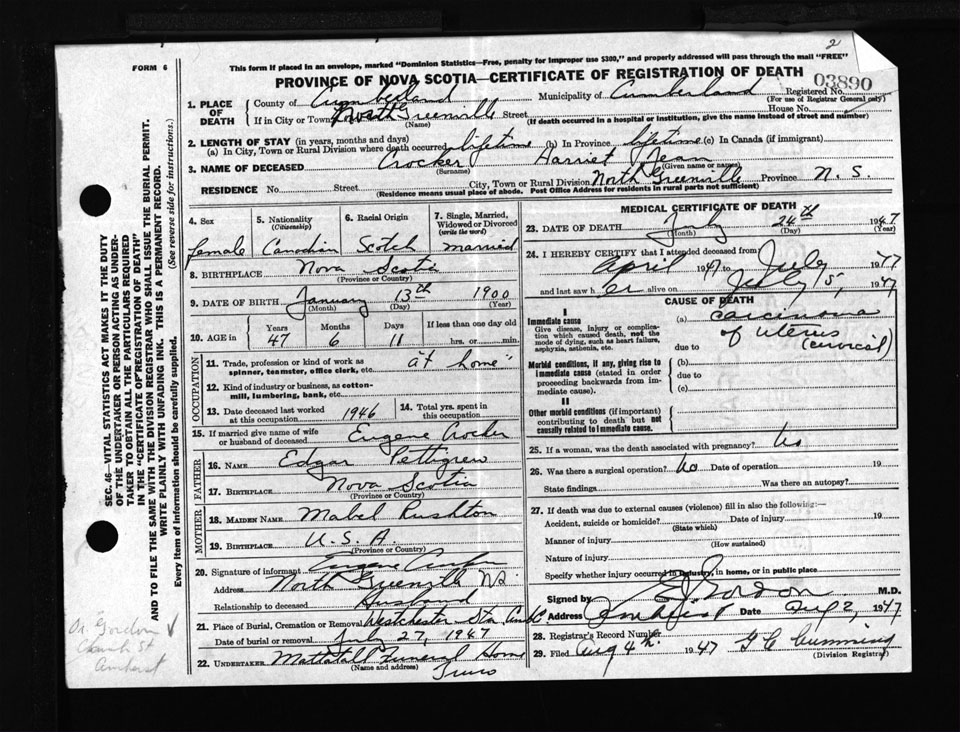 2
FORM 6
This form if placed in an envelope, marked "Dominion Statistics—Free, penalty for improper use $300," and properly addressed will pass through the mail "FREE"
PROVINCE OF NOVA SCOTIA—CERTIFICATE OF REGISTRATION OF DEATH
03890
1. PLACE OF DEATH
County of Cumberland Municipality of Cumberland Registered No.
(For use of Registrar General only)
If in City or Town North Greenville Street House No.
(Name) (If death occurred in a hospital or institution, give the name instead of street and number)
2. LENGTH OF STAY (in years, months and days)
(a) In City, Town or Rural Division where death occurred lifetime (b) In Province lifetime (c) In Canada (if immigrant)
3. NAME OF DECEASED Crocker Harriet Jean
(Surname) (Given name or names)
RESIDENCE No. Street City, Town or Rural Division North Greenville Province N. S.
(Residence means usual place of abode. Post Office Address for residents in rural parts not sufficient)
4. Sex female
5. Nationality (Citizenship) Canadian
6. Racial Origin Scotch
7. Single, Married, Widowed or Divorced (write the word) married
8. BIRTHPLACE Nova Scotia
(Province or Country)
9. DATE OF BIRTH January 13th 1900
(Month) (Day) (Year)
10. AGE in Years 47 Months 6 Days 11 If less than one day old hrs. or min.
OCCUPATION
11. Trade, profession or kind of work as spinner, teamster, office clerk, etc. "at home"
12. Kind of industry or business, as cotton-mill, lumbering, bank, etc.
13. Date deceased last worked at this occupation 1946
14. Total yrs. spent in this occupation
15. If married give name of wife or husband of deceased Eugene Crocker
FATHER
16. NAME Edgar Pettigrew
17. BIRTHPLACE Nova Scotia
(Province or Country)
MOTHER
18. MAIDEN NAME Mabel Rushton
19. BIRTHPLACE U. S. A.
(Province or Country)
20. Signature of informant Eugene Crocker
Address North Greenville N.S.
Relationship to deceased Husband
21. Place of Burial, Cremation or Removal Westchester Sta.
Date of burial or removal July 27, 1947
22. UNDERTAKER Mattatall Funeral Home
(Name and address) Truro
MEDICAL CERTIFICATE OF DEATH
23. DATE OF DEATH July 24th 1947
(Month) (Day) (Year)
24. I HEREBY CERTIFY that I attended deceased from
April 1947 to July 1947
and last saw her alive on July 15, 1947
CAUSE OF DEATH
I
Immediate cause
Give disease, injury or complication which caused death, not the mode of dying, such as heart failure, asphyxia, asthenia, etc.
(a) Carcinoma of Uterus (cervical)
due to
Morbid conditions, if any, giving rise to immediate cause (stated in order proceeding backwards from immediate cause).
(b)
due to
(c)
II
Other morbid conditions (if important) contributing to death but not causally related to immediate cause.
25. If a woman, was the death associated with pregnancy? No
26. Was there a surgical operation? No Date of operation 19
State findings Was there an autopsy?
27. If death was due to external causes (violence) fill in also the following:—
Accident, suicide or homicide? Date of injury 19
(State which)
Manner of injury
(How sustained)
Nature of injury
Specify whether injury occurred in industry, in home, or in public place
Signed by Gordon M.D.
Address Amherst Date Aug 2, 1947
28. Registrar's Record Number
29. Filed Aug 4th 1947 G C Cumming
(Division Registrar)
SEC. 46—VITAL STATISTICS ACT MAKES IT THE DUTY OF THE UNDERTAKER OR PERSON ACTING AS UNDERTAKER TO OBTAIN ALL THE PARTICULARS REQUIRED IN THE "CERTIFICATE OF REGISTRATION OF DEATH" AND TO FILE THE SAME WITH THE DIVISION REGISTRAR WHO SHALL ISSUE THE BURIAL PERMIT.
WRITE PLAINLY WITH UNFADING INK. THIS IS A PERMANENT RECORD.
Every item of information should be carefully supplied. (See reverse side for instructions.)
Dr. Gordon
Church St
Amherst